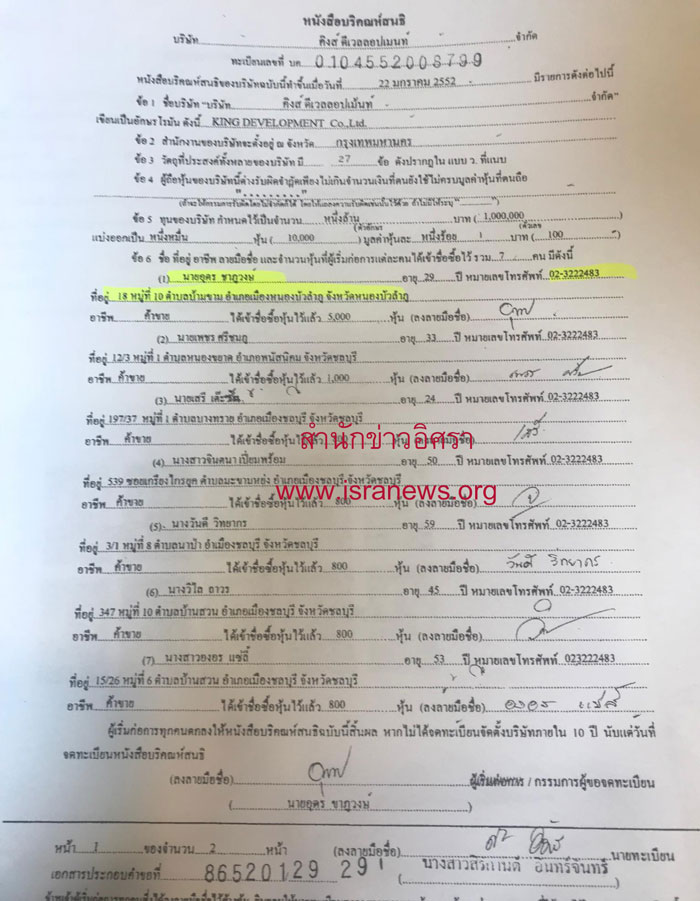 หนังสือบริคณห์สนธิ
บริษัท คิงส์ ดีเวลลอปเมนท์ จำกัด
ทะเบียนเลขที่ บค. 0104552008799
หนังสือบริคณห์สนธิของบริษัทฉบับนี้ทำขึ้นเมื่อวันที่ 22 มกราคม 2552 มีรายการดังต่อไปนี้
ข้อ 1 ชื่อบริษัท "บริษัท คิงส์ ดีเวลลอปเม้นท์ จำกัด"
เขียนเป็นอักษรโรมัน ดังนี้ KING DEVELOPMENT Co.,Ltd.
ข้อ 2 สำนักงานของบริษัทจะตั้งอยู่ ณ จังหวัด กรุงเทพมหานคร
ข้อ 3 วัตถุที่ประสงค์ทั้งหลายของบริษัท มี 27 ข้อ ดังปรากฏใน แบบ ว. ที่แนบ
ข้อ 4 ผู้ถือหุ้นของบริษัทนี้ต่างรับผิดจำกัดเพียงไม่เกินจำนวนเงินที่ตนยังใช้ไม่ครบมูลค่าหุ้นที่ตนถือ
ข้อ 5 ทุนของบริษัท กำหนดไว้เป็นจำนวน หนึ่งล้าน บาท ( 1,000,000 )
(ตัวอักษร) (ตัวเลข)
แบ่งออกเป็น หนึ่งหมื่น หุ้น ( 10,000 ) มูลค่าหุ้นละ หนึ่งร้อย บาท ( 100 )
ข้อ 6 ชื่อ ที่อยู่ อาชีพ ลายมือชื่อ และจำนวนหุ้นที่ผู้เริ่มก่อการแต่ละคนได้เข้าชื่อซื้อไว้ รวม 7 คน มีดังนี้
(1) นายอุดร ชาภูวงษ์ อายุ 29 ปี หมายเลขโทรศัพท์ 02-3222483
ที่อยู่ 18 หมู่ที่ 10 ตำบลบ้านขาม อำเภอเมืองหนองบัวลำภู จังหวัดหนองบัวลำภู
อาชีพ ค้าขาย ได้เข้าชื่อซื้อหุ้นไว้แล้ว 5,000 หุ้น (ลงลายมือชื่อ)
(2) นายเพชร ศรีชมภู อายุ 33 ปี หมายเลขโทรศัพท์ 02-3222483
ที่อยู่ 12/3 หมู่ที่ 1 ตำบลหนองขยาด อำเภอพนัสนิคม จังหวัดชลบุรี
อาชีพ ค้าขาย ได้เข้าชื่อซื้อหุ้นไว้แล้ว 1,000 หุ้น (ลงลายมือชื่อ)
(3) นายเสรี อายุ 24 ปี หมายเลขโทรศัพท์ 02-3222483
ที่อยู่ 197/37 หมู่ที่ 1 ตำบลบางทราย อำเภอเมืองชลบุรี จังหวัดชลบุรี
สำนักข่าวอิศรา
อาชีพ ค้าขาย ได้เข้าชื่อซื้อหุ้นไว้แล้ว หุ้น (ลงลายมือชื่อ) เสรี
(4) นางสาวจินตนา เปี่ยมพร้อม อายุ 50 ปี หมายเลขโทรศัพท์ 02-3222483
ที่อยู่ 539 ซอยเกรียงไกรยุค ตำบลมะขามหย่ง อำเภอเมืองชลบุรี จังหวัดชลบุรี
www.isranews.org
อาชีพ ค้าขาย ได้เข้าชื่อซื้อหุ้นไว้แล้ว 800 หุ้น (ลงลายมือชื่อ)
(5) นางวันดี วิทยากร อายุ 59 ปี หมายเลขโทรศัพท์ 02-3222483
ที่อยู่ 3/1 หมู่ที่ 8 ตำบลนาป่า อำเภอเมืองชลบุรี จังหวัดชลบุรี
อาชีพ ค้าขาย ได้เข้าชื่อซื้อหุ้นไว้แล้ว 800 หุ้น (ลงลายมือชื่อ) วันดี วิทยากร
(6) นางวิไล ถาวร อายุ 45 ปี หมายเลขโทรศัพท์ 02-3222483
ที่อยู่ 347 หมู่ที่ 10 ตำบลบ้านสวน อำเภอเมืองชลบุรี จังหวัดชลบุรี
อาชีพ ค้าขาย ได้เข้าชื่อซื้อหุ้นไว้แล้ว 800 หุ้น (ลงลายมือชื่อ)
(7) นางสาวองอร แซ่ลี้ อายุ 53 ปี หมายเลขโทรศัพท์ 023222483
ที่อยู่ 15/26 หมู่ที่ 6 ตำบลบ้านสวน อำเภอเมืองชลบุรี จังหวัดชลบุรี
อาชีพ ค้าขาย ได้เข้าชื่อซื้อหุ้นไว้แล้ว 800 หุ้น (ลงลายมือชื่อ) องอร แซ่ลี้
ผู้เริ่มก่อการทุกคนตกลงให้หนังสือบริคณห์สนธิฉบับนี้สิ้นผล หากไม่ได้จดทะเบียนจัดตั้งบริษัทภายใน 10 ปี นับแต่วันที่
จดทะเบียนหนังสือบริคณห์สนธิ
(ลงลายมือชื่อ) ผู้เริ่มก่อการ / กรรมการผู้ขอจดทะเบียน
( นายอุดร ชาภูวงษ์ )
หน้า 1 ของจำนวน 2 หน้า (ลงลายมือชื่อ) นายทะเบียน
เอกสารประกอบคำขอที่ 86520129 291 ( นางสาวสิริกานต์ อินทร์จันทร์ )